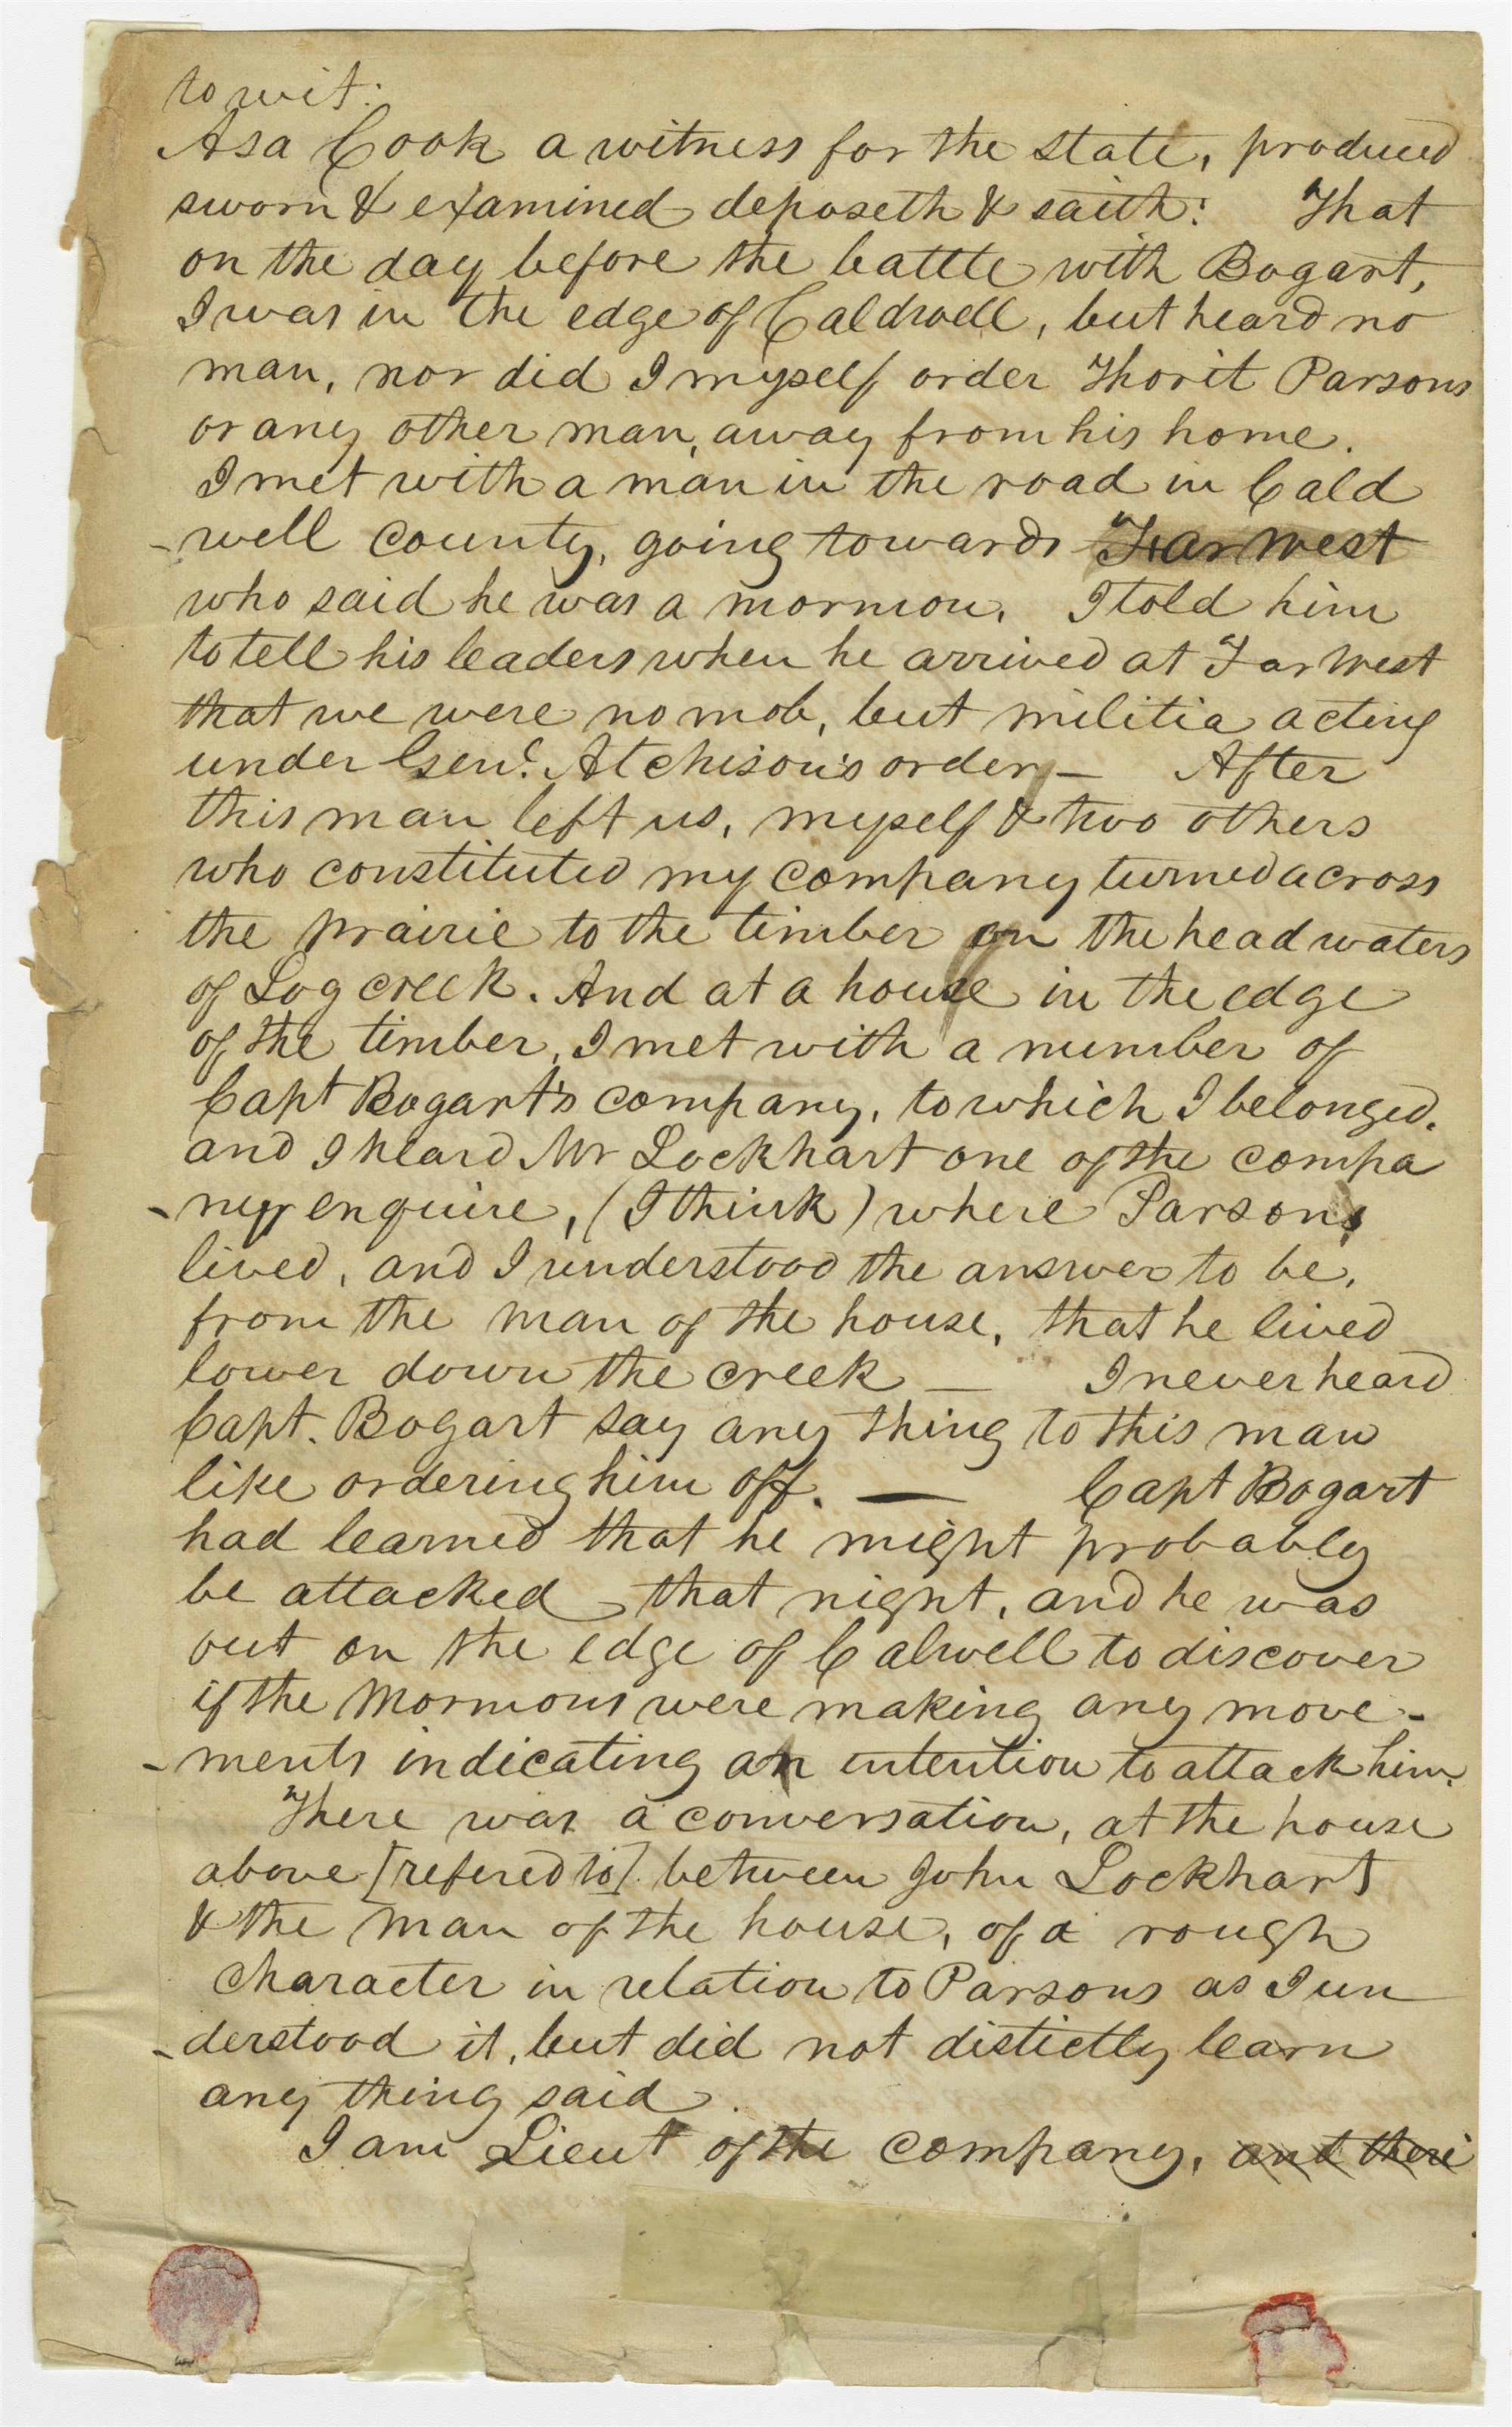 to wit:
Asa Cook a witness for the state, produced
sworn & examined deposeth & saith: That
on the day before the battle with Bogart,
I was in the edge of Caldwell, but heard no
man, nor did I myself order Thorit Parsons
or any other man, away from his home.
I met with a man in the road in Cald
-well county, going towards Far West
who said he was a mormon. I told him
to tell his leaders when he arrived at Far West
that we were no mob, but militia acting
under Genl. Atchison's order — After
this man left us, myself & two others
who constituted my company turned across
the prairie to the timber on the head waters
of Log creek. And at a house in the edge
of the timber, I met with a number of
Capt Bogart's company, to which I belonged.
and I heard Mr Lockhart one of the compa
-ny enquire, (I think) where Parsons
lived, and I understood the answer to be,
from the man of the house, that he lived
lower down the creek — I never heard
Capt. Bogart say any thing to this man
like ordering him off. — Capt Bogart
had learned that he might probably
be attacked that night, and he was
out on the edge of Calwell to discover
if the Mormons were making any move-
-ments indicating an intention to attack him.
There was a conversation, at the house
above [refered to] between John Lockhart
& the man of the house, of a rough
character in relation to Parsons as I un
-derstood it, but did not distictly learn
any thing said.
I am Lieut of the company, and there